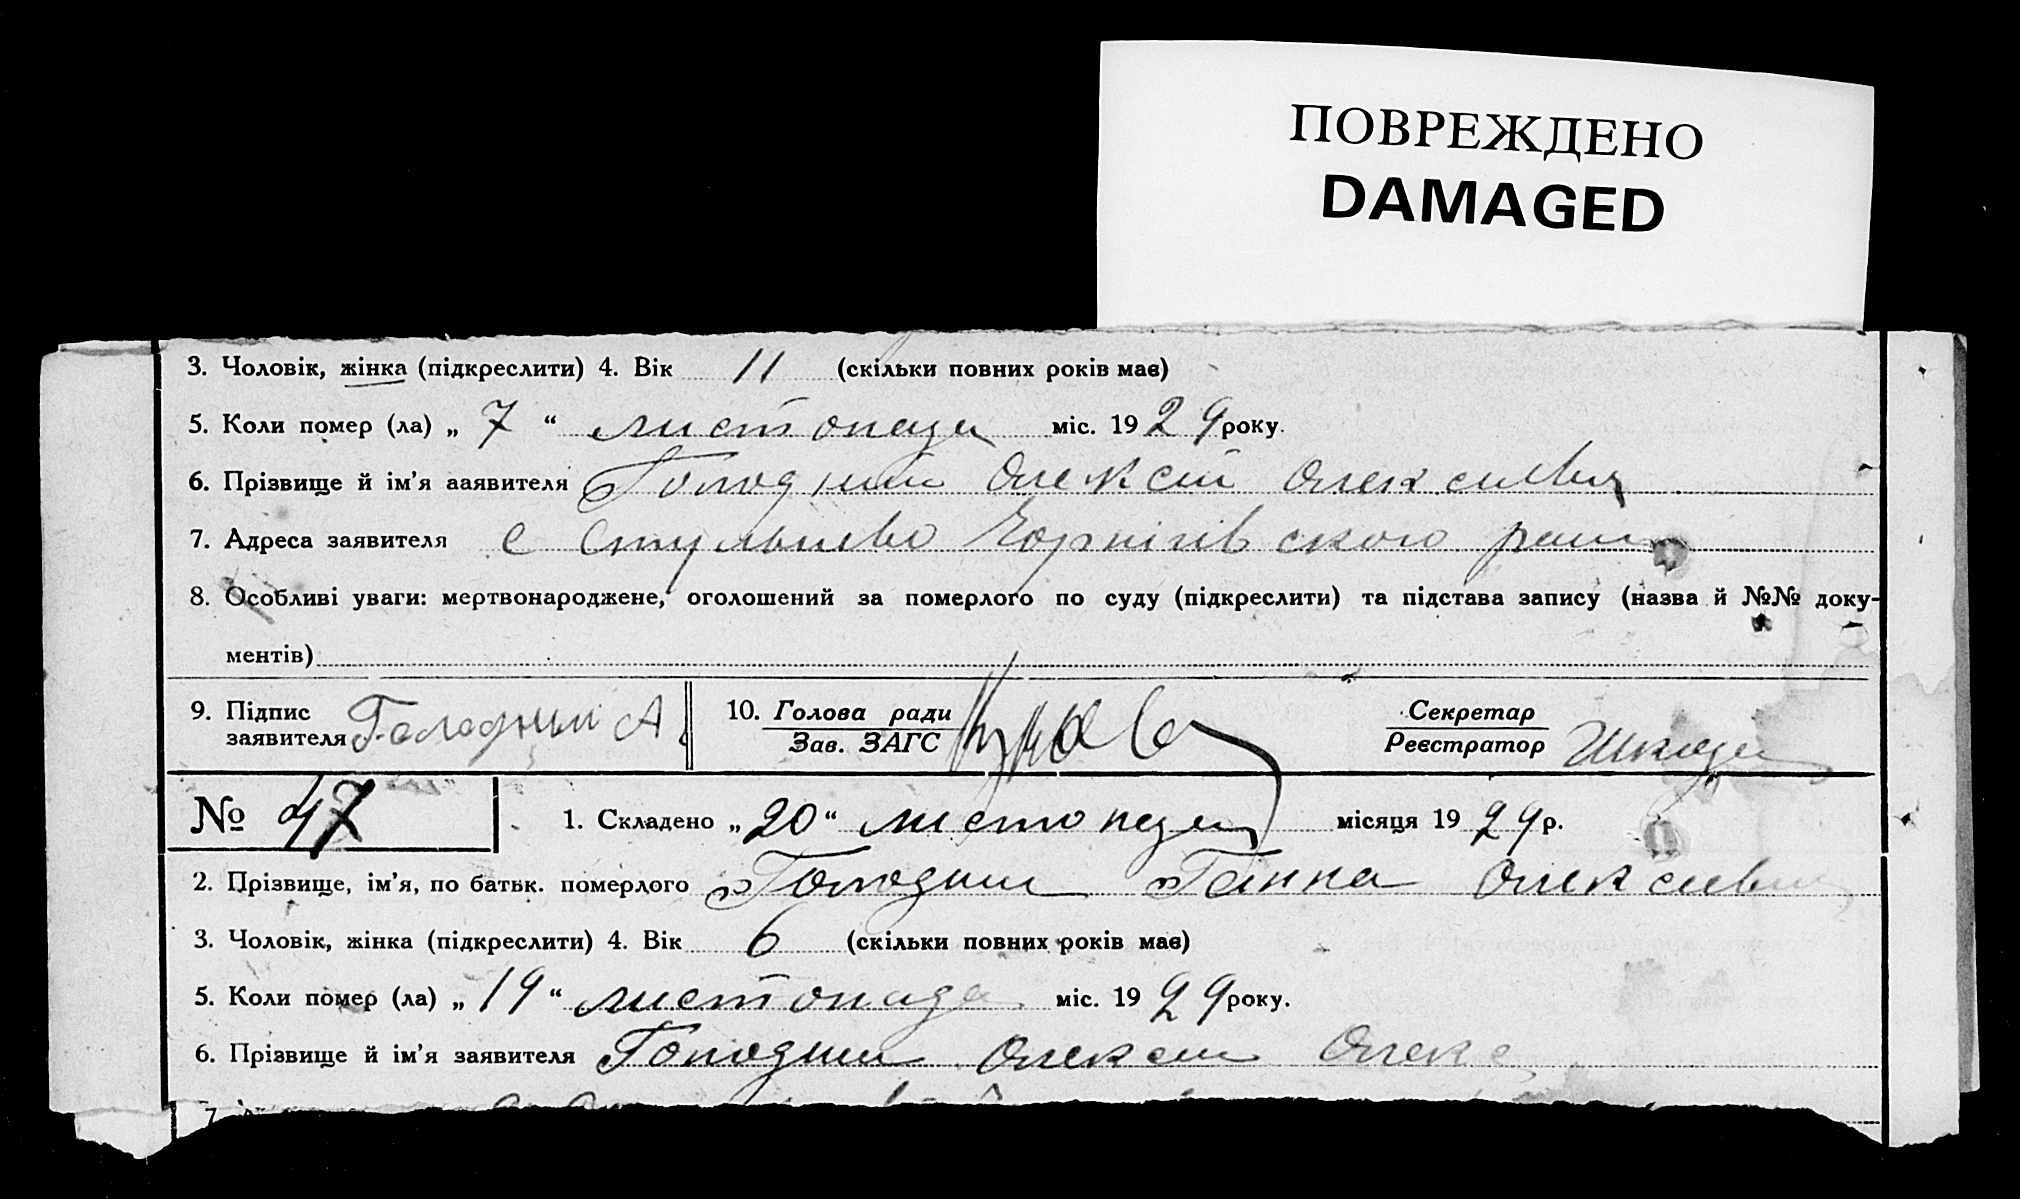 ПОВРЕЖДЕНО
DAMAGED
3. Чоловік, жінка (підкреслити) 4. Вік 11 (скільки повних років має)
5. Коли помер (ла) „ 7 “ листопада міс. 1929 року.
6. Прізвище й ім'я заявителя Голодний Олексій Олексієвич
7. Адреса заявителя с
8. Особливі уваги: мертвонароджене, оголошений за померлого по суду (підкреслити) та підстава запису (назва й №№ доку-
ментів)
9. Підпис заявителя Голодный А
10. Голова ради
Зав. ЗАГС
Секретар
Реєстратор
№ 47 1. Складено „ 20 “ листопада місяця 1929 р.
2. Прізвище, ім'я, по батьк. померлого Голодний Ганна
3. Чоловік, жінка (підкреслити) 4. Вік 6 (скільки повних років має)
5. Коли помер (ла) „ 19 “ листопада міс. 1929 року.
6. Прізвище й ім'я заявителя Голодний Олексій Олекс
7.